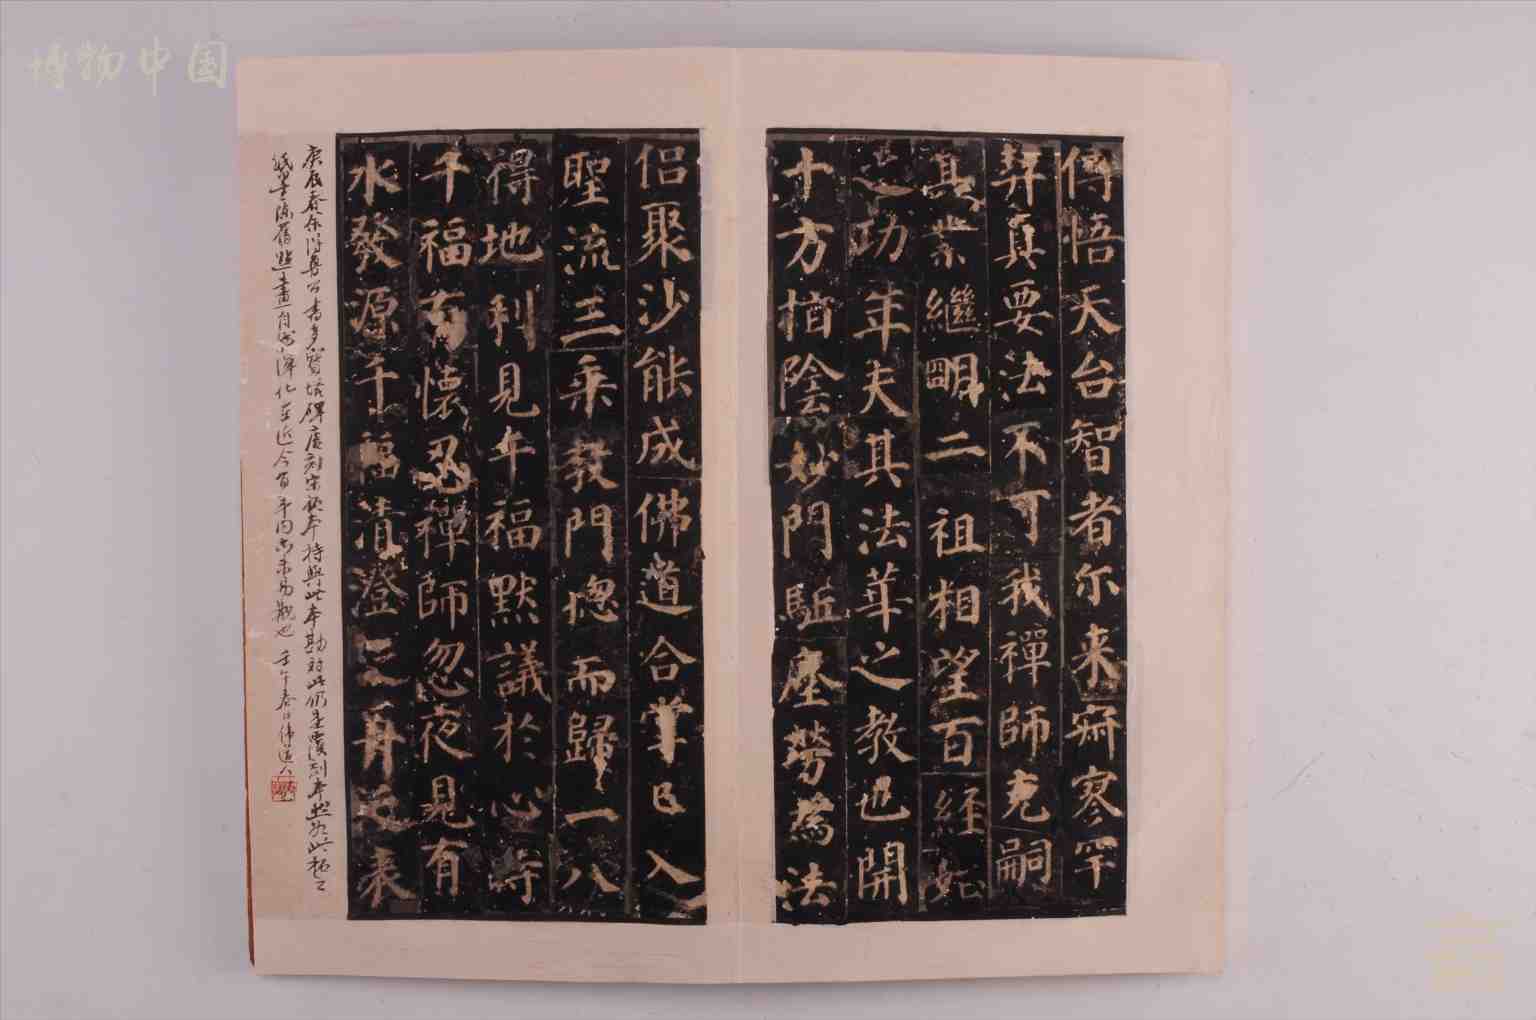 博物中国
傳悟天台智者尔来寂寥罕
契真要法不可我禪師克嗣
其業繼明二祖相望百經如
之功年夫其法華之教也開
十方指陰妙門駈塵勞為法
侣聚沙能成佛道合掌已入
聖流三乘教門揔而歸一八
得地利見千福默議於心時
千福有懷忍禪師忽夜見有
水發源千福清澄
庚辰春余得魯公書多寶塔碑刻宋拓本持與此本勘對此仍是覆刻本然如此拓工
紙墨舊點畫近今百年内亦未易觀也 壬午春日